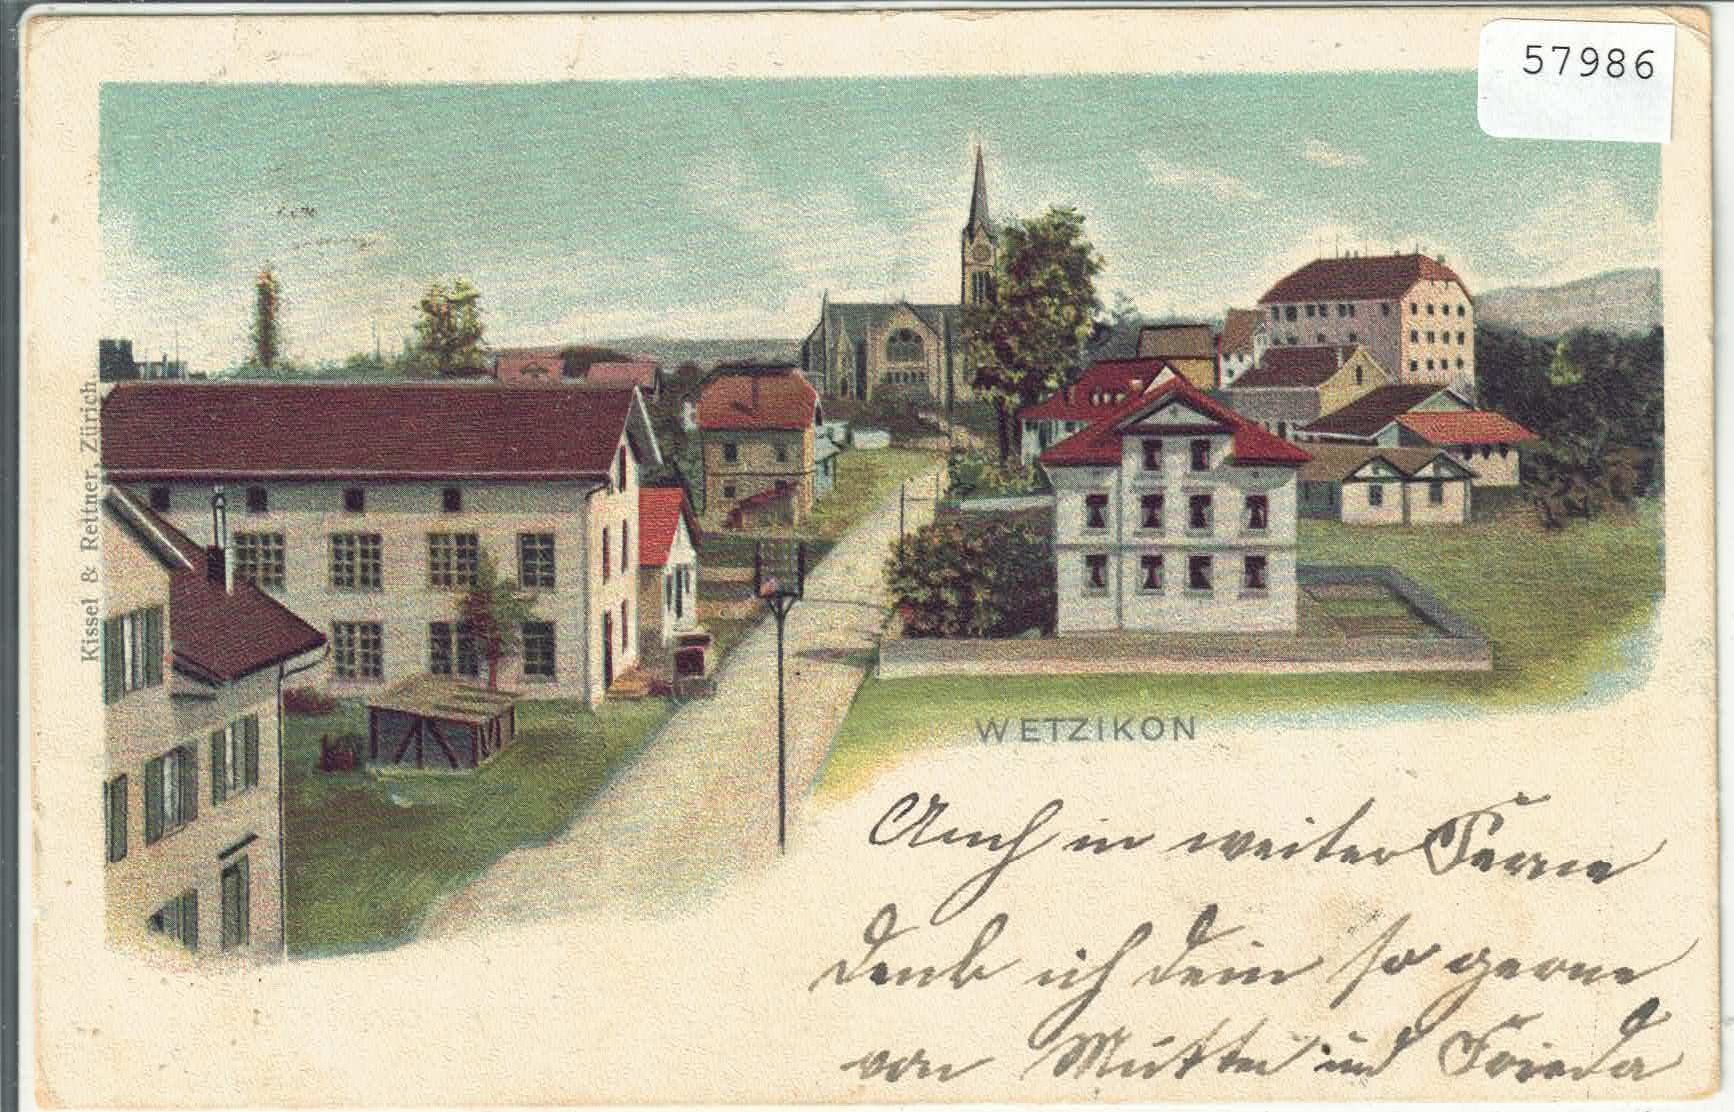 57986
Kissel & Rettner, Zürich
WETZIKON
Auch in weiter Ferne
denk ich dein so gerne
von Mutter und Frieda